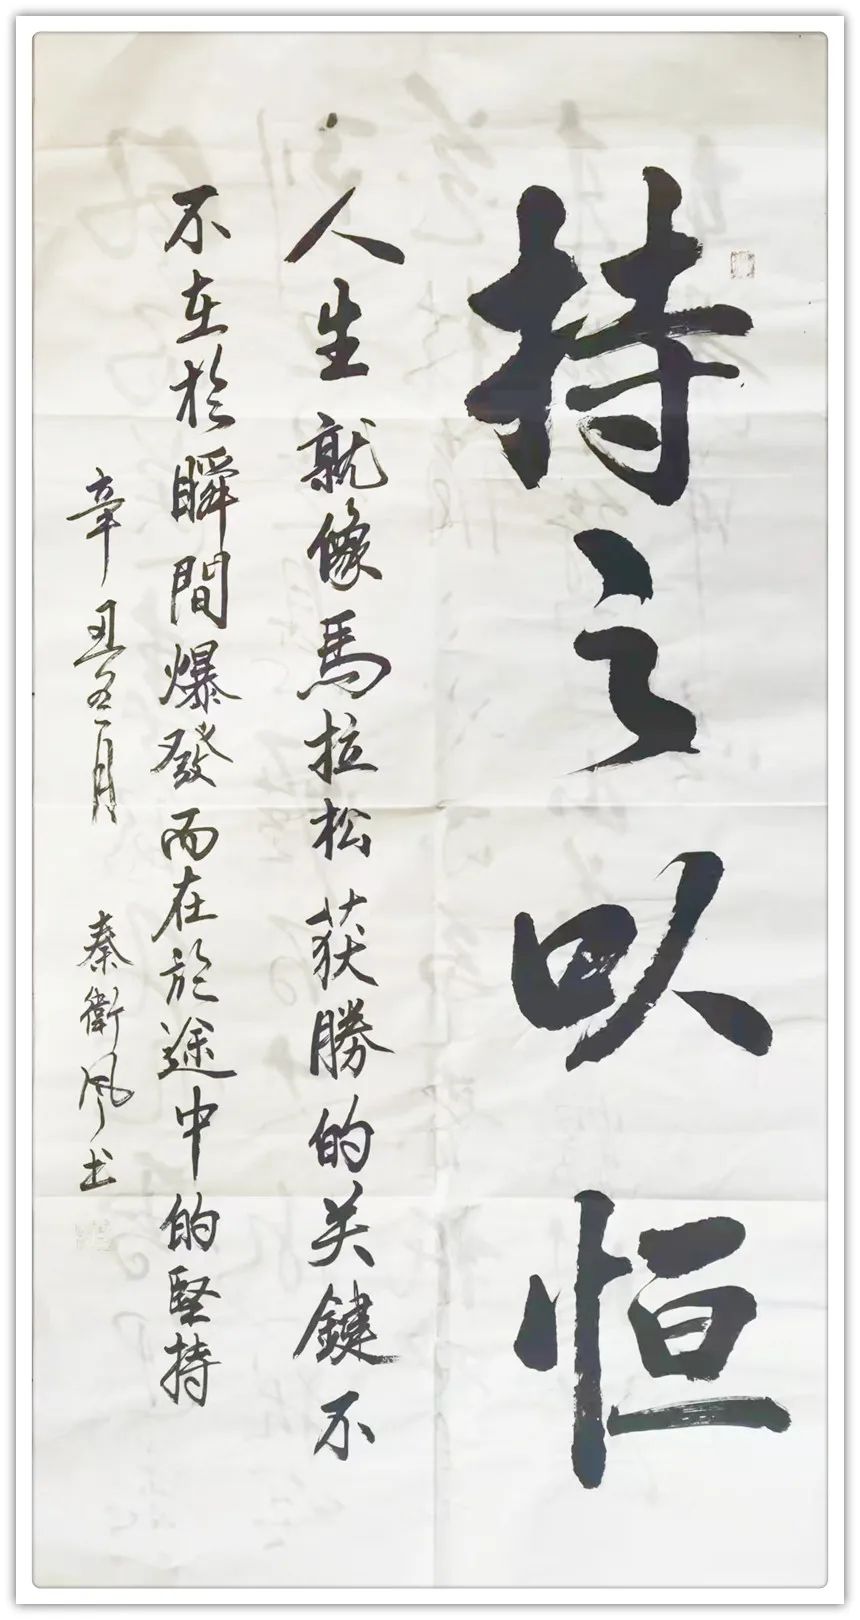 持之以恒
人生就像馬拉松获勝的关鍵不
不在於瞬間爆發而在於途中的堅持
辛丑五月 秦衛風书